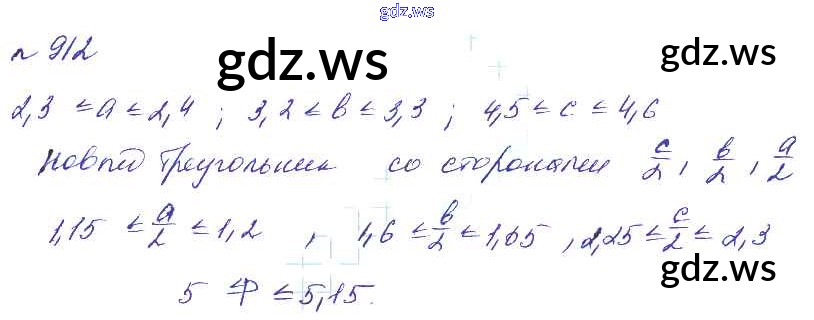 gdz.ws
n 912
gdz.ws
gdz.ws
2,3 ≤ a ≤ 2,4 ; 3,2 ≤ b ≤ 3,3 ; 4,5 ≤ c ≤ 4,6
Новый треугольник со сторонами c/2, b/2, a/2
1,15 ≤ a/2 ≤ 1,2 , 1,6 ≤ b/2 ≤ 1,65 , 2,25 ≤ c/2 ≤ 2,3
5 ≤ P ≤ 5,15.
gdz.ws